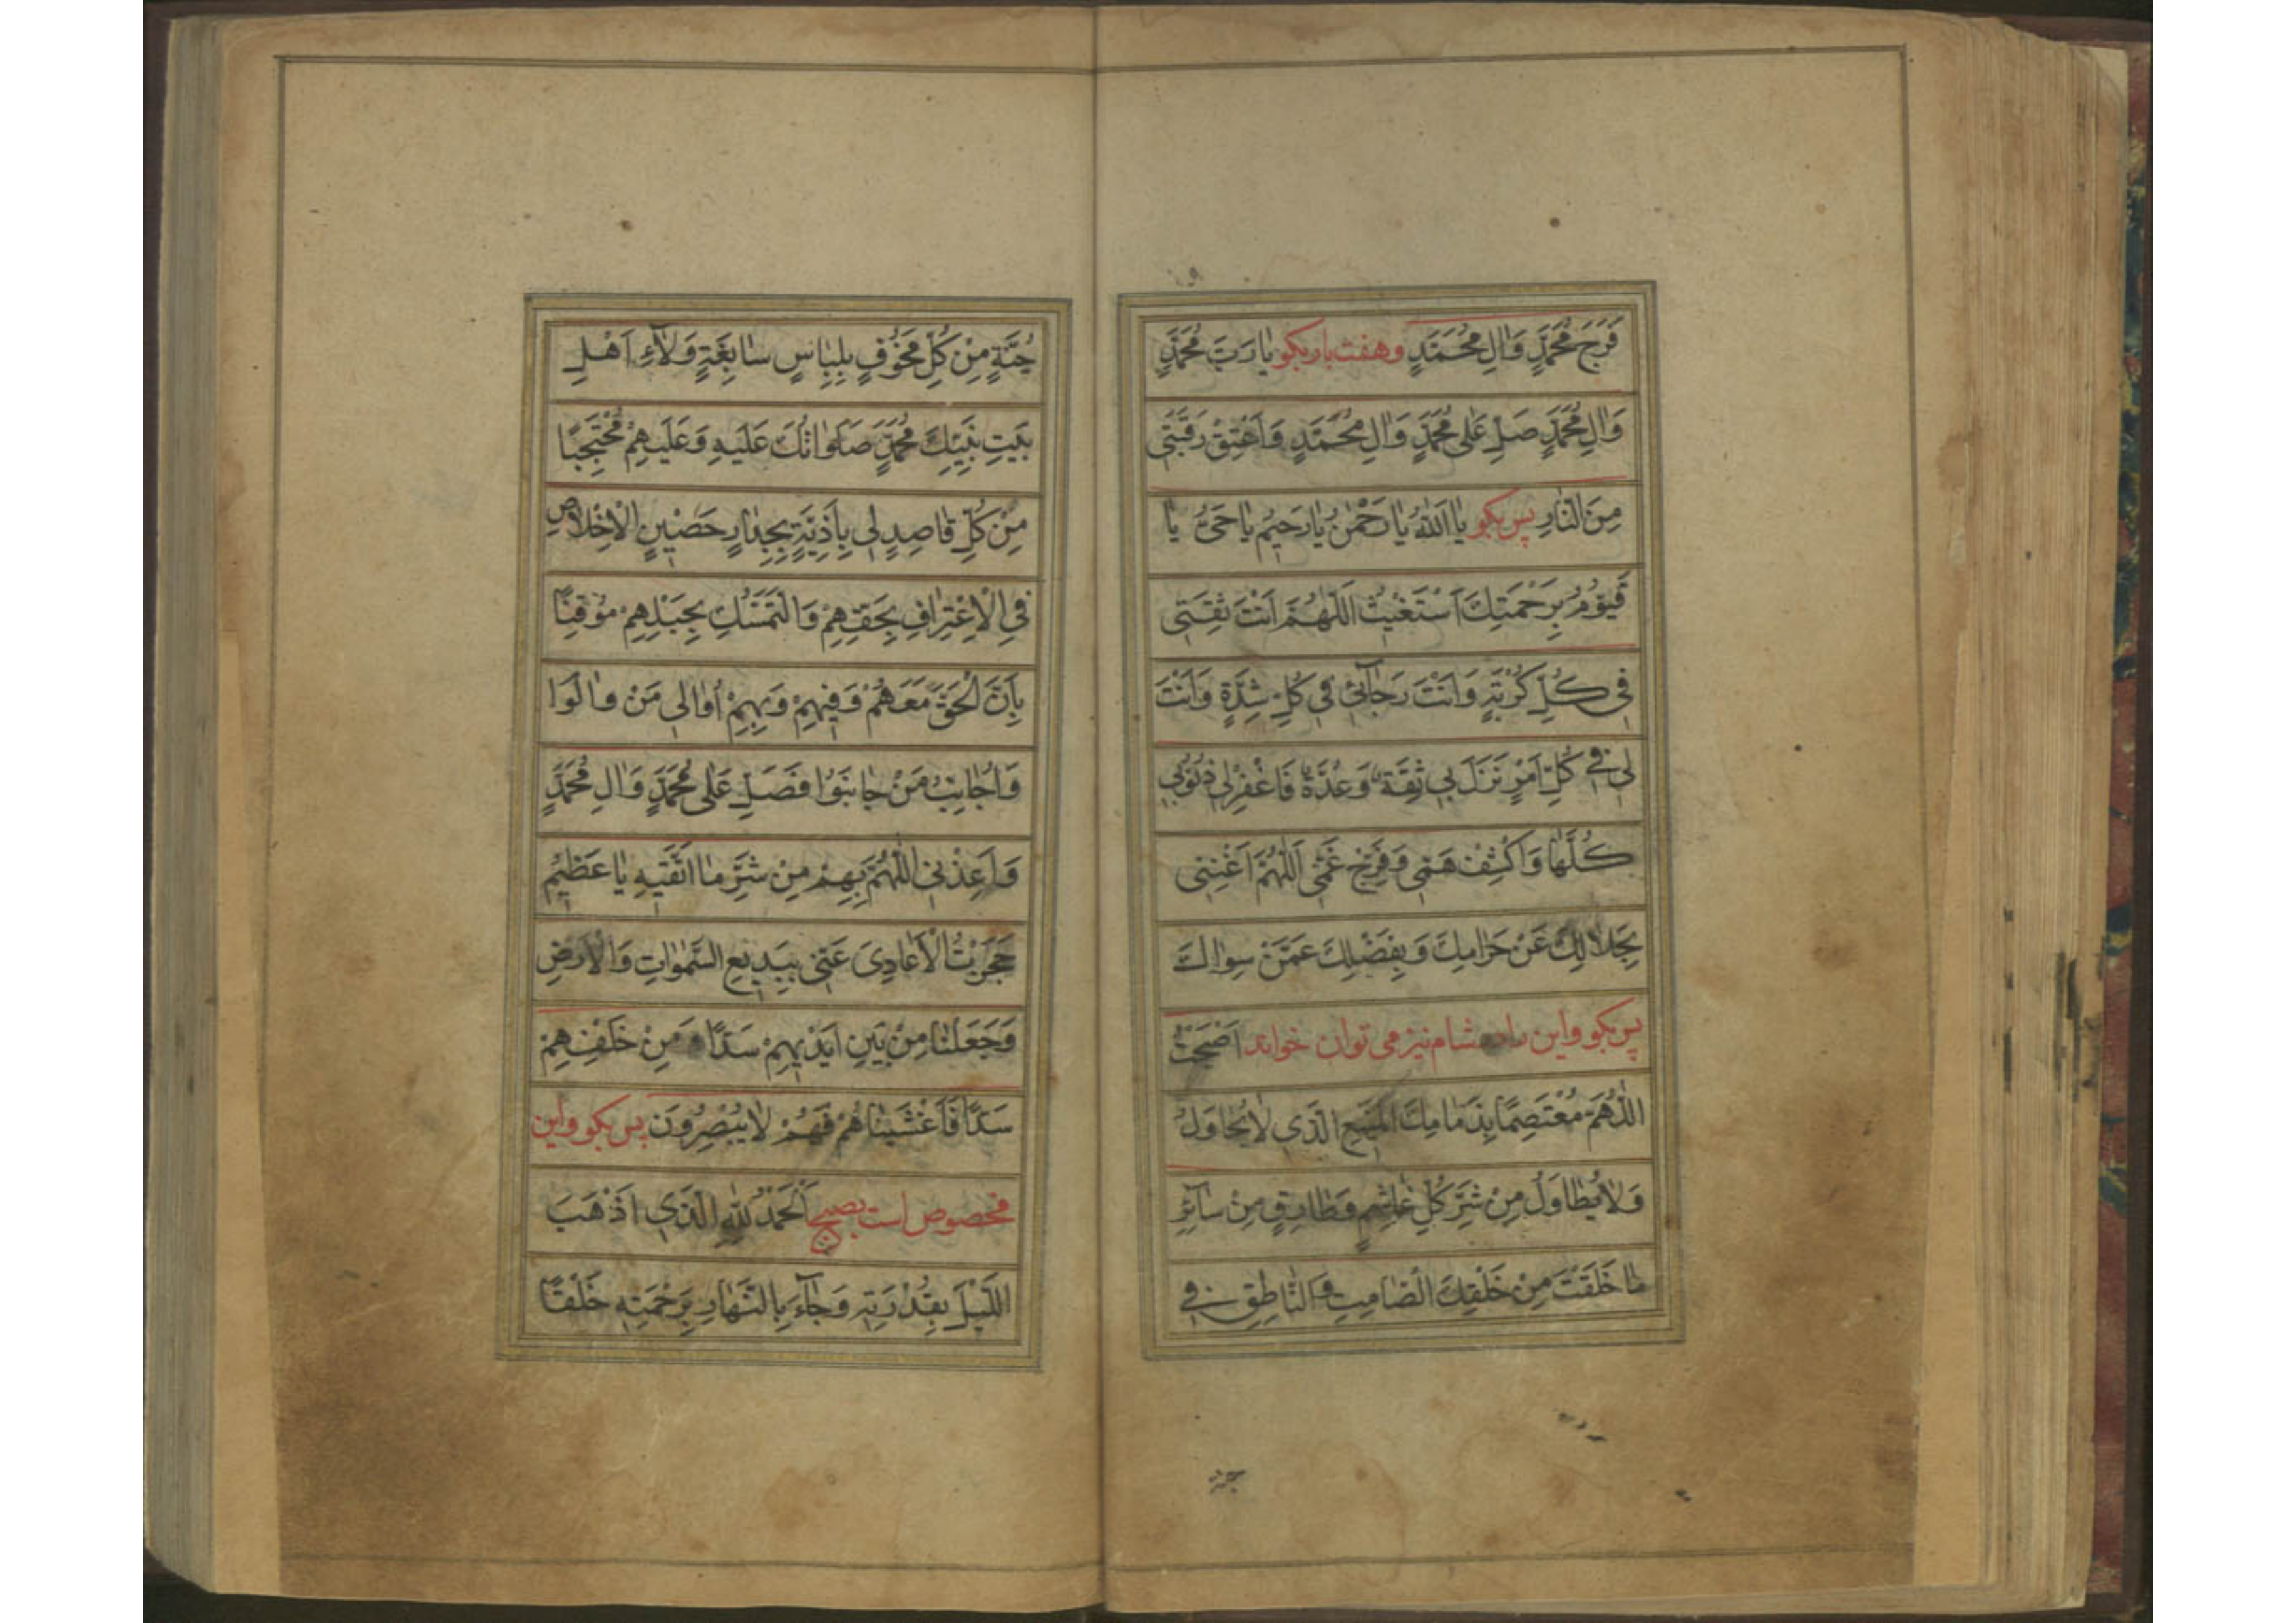 فَرَجَ مُحَمَّدٍ وَاٰلِ مُحَمَّدٍ وهفت بار بکو یٰا رَبَّ مُحَمَّدٍ
وَاٰلِ مُحَمَّدٍ صَلِّ عَلٰى مُحَمَّدٍ وَاٰلِ مُحَمَّدٍ وَاَعْتِقْ رَقَبَتٖى
مِنَ النّٰارِ پس بکو یٰا اَللّٰهُ یٰا رَحْمٰنُ یٰا رَحٖیمُ یٰا حَىُّ یٰا
قَیُّومُ بِرَحْمَتِكَ اَسْتَغٖیثُ اَللّٰهُمَّ اَنْتَ ثِقَتٖى
فٖى كُلِّ كُرْبَةٍ وَاَنْتَ رَجٰآئٖى فٖى كُلِّ شِدَّةٍ وَاَنْتَ
لٖى فٖى كُلِّ اَمْرٍ نَزَلَ بٖى ثِقَةٌ وَعُدَّةٌ فَاغْفِرْ لٖى ذُنُوبٖى
كُلَّهٰا وَاكْشِفْ هَمّٖى وَفَرِّجْ غَمّٖى اَللّٰهُمَّ اَغْنِنٖى
بِحَلاٰلِكَ عَنْ حَرٰامِكَ وَبِفَضْلِكَ عَمَّنْ سِوٰاكَ
پس بکو واین را در شام نیز می توان خواند اَصْبَحْتُ
اَللّٰهُمَّ مُعْتَصِمًا بِذِمٰامِكَ الْمَنٖیعِ الَّذٖى لاٰ یُحٰاوَلُ
وَلاٰ یُطٰاوَلُ مِنْ شَرِّ كُلِّ غٰاشِمٍ وَطٰارِقٍ مِنْ سٰآئِرِ
مٰا خَلَقْتَ مِنْ خَلْقِكَ الصّٰامِتِ وَالنّٰاطِقِ فٖى
جُنَّةٍ مِنْ كُلِّ مَخُوفٍ بِلِبٰاسٍ سٰابِغَةٍ وَلاٰءِ اَهْلِ
بَیْتِ نَبِیِّكَ مُحَمَّدٍ صَلَوٰاتُكَ عَلَیْهِ وَعَلَیْهِمْ مُحْتَجِبًا
مِنْ كُلِّ قٰاصِدٍ لٖى بِاَذِیَّةٍ بِجِدٰارٍ حَصٖینٍ الْاِخْلاٰصِ
فِى الْاِعْتِرٰافِ بِحَقِّهِمْ وَالتَّمَسُّكِ بِحَبْلِهِمْ مُوقِنًا
بِاَنَّ الْحَقَّ مَعَهُمْ وَفٖیهِمْ وَبِهِمْ اُوٰالٖى مَنْ وٰالَوْا
وَاُجٰانِبُ مَنْ جٰانَبُوا فَصَلِّ عَلٰى مُحَمَّدٍ وَاٰلِ مُحَمَّدٍ
وَاَعِذْنٖى اَللّٰهُمَّ بِهِمْ مِنْ شَرِّ مٰا اَتَّقٖیهِ یٰا عَظٖیمُ
حَجَزْتُ الْاَعٰادِىَ عَنّٖى بِبَدٖیعِ السَّمٰوٰاتِ وَالْاَرْضِ
وَجَعَلْنٰا مِنْ بَیْنِ اَیْدٖیهِمْ سَدًّا وَمِنْ خَلْفِهِمْ
سَدًّا فَاَغْشَیْنٰاهُمْ فَهُمْ لاٰ یُبْصِرُونَ پس بکو واین
مخصوص است بصبح اَلْحَمْدُ لِلّٰهِ الَّذٖى اَذْهَبَ
اللَّیْلَ بِقُدْرَتِهٖ وَجٰآءَ بِالنَّهٰارِ بِرَحْمَتِهٖ خَلْقًا